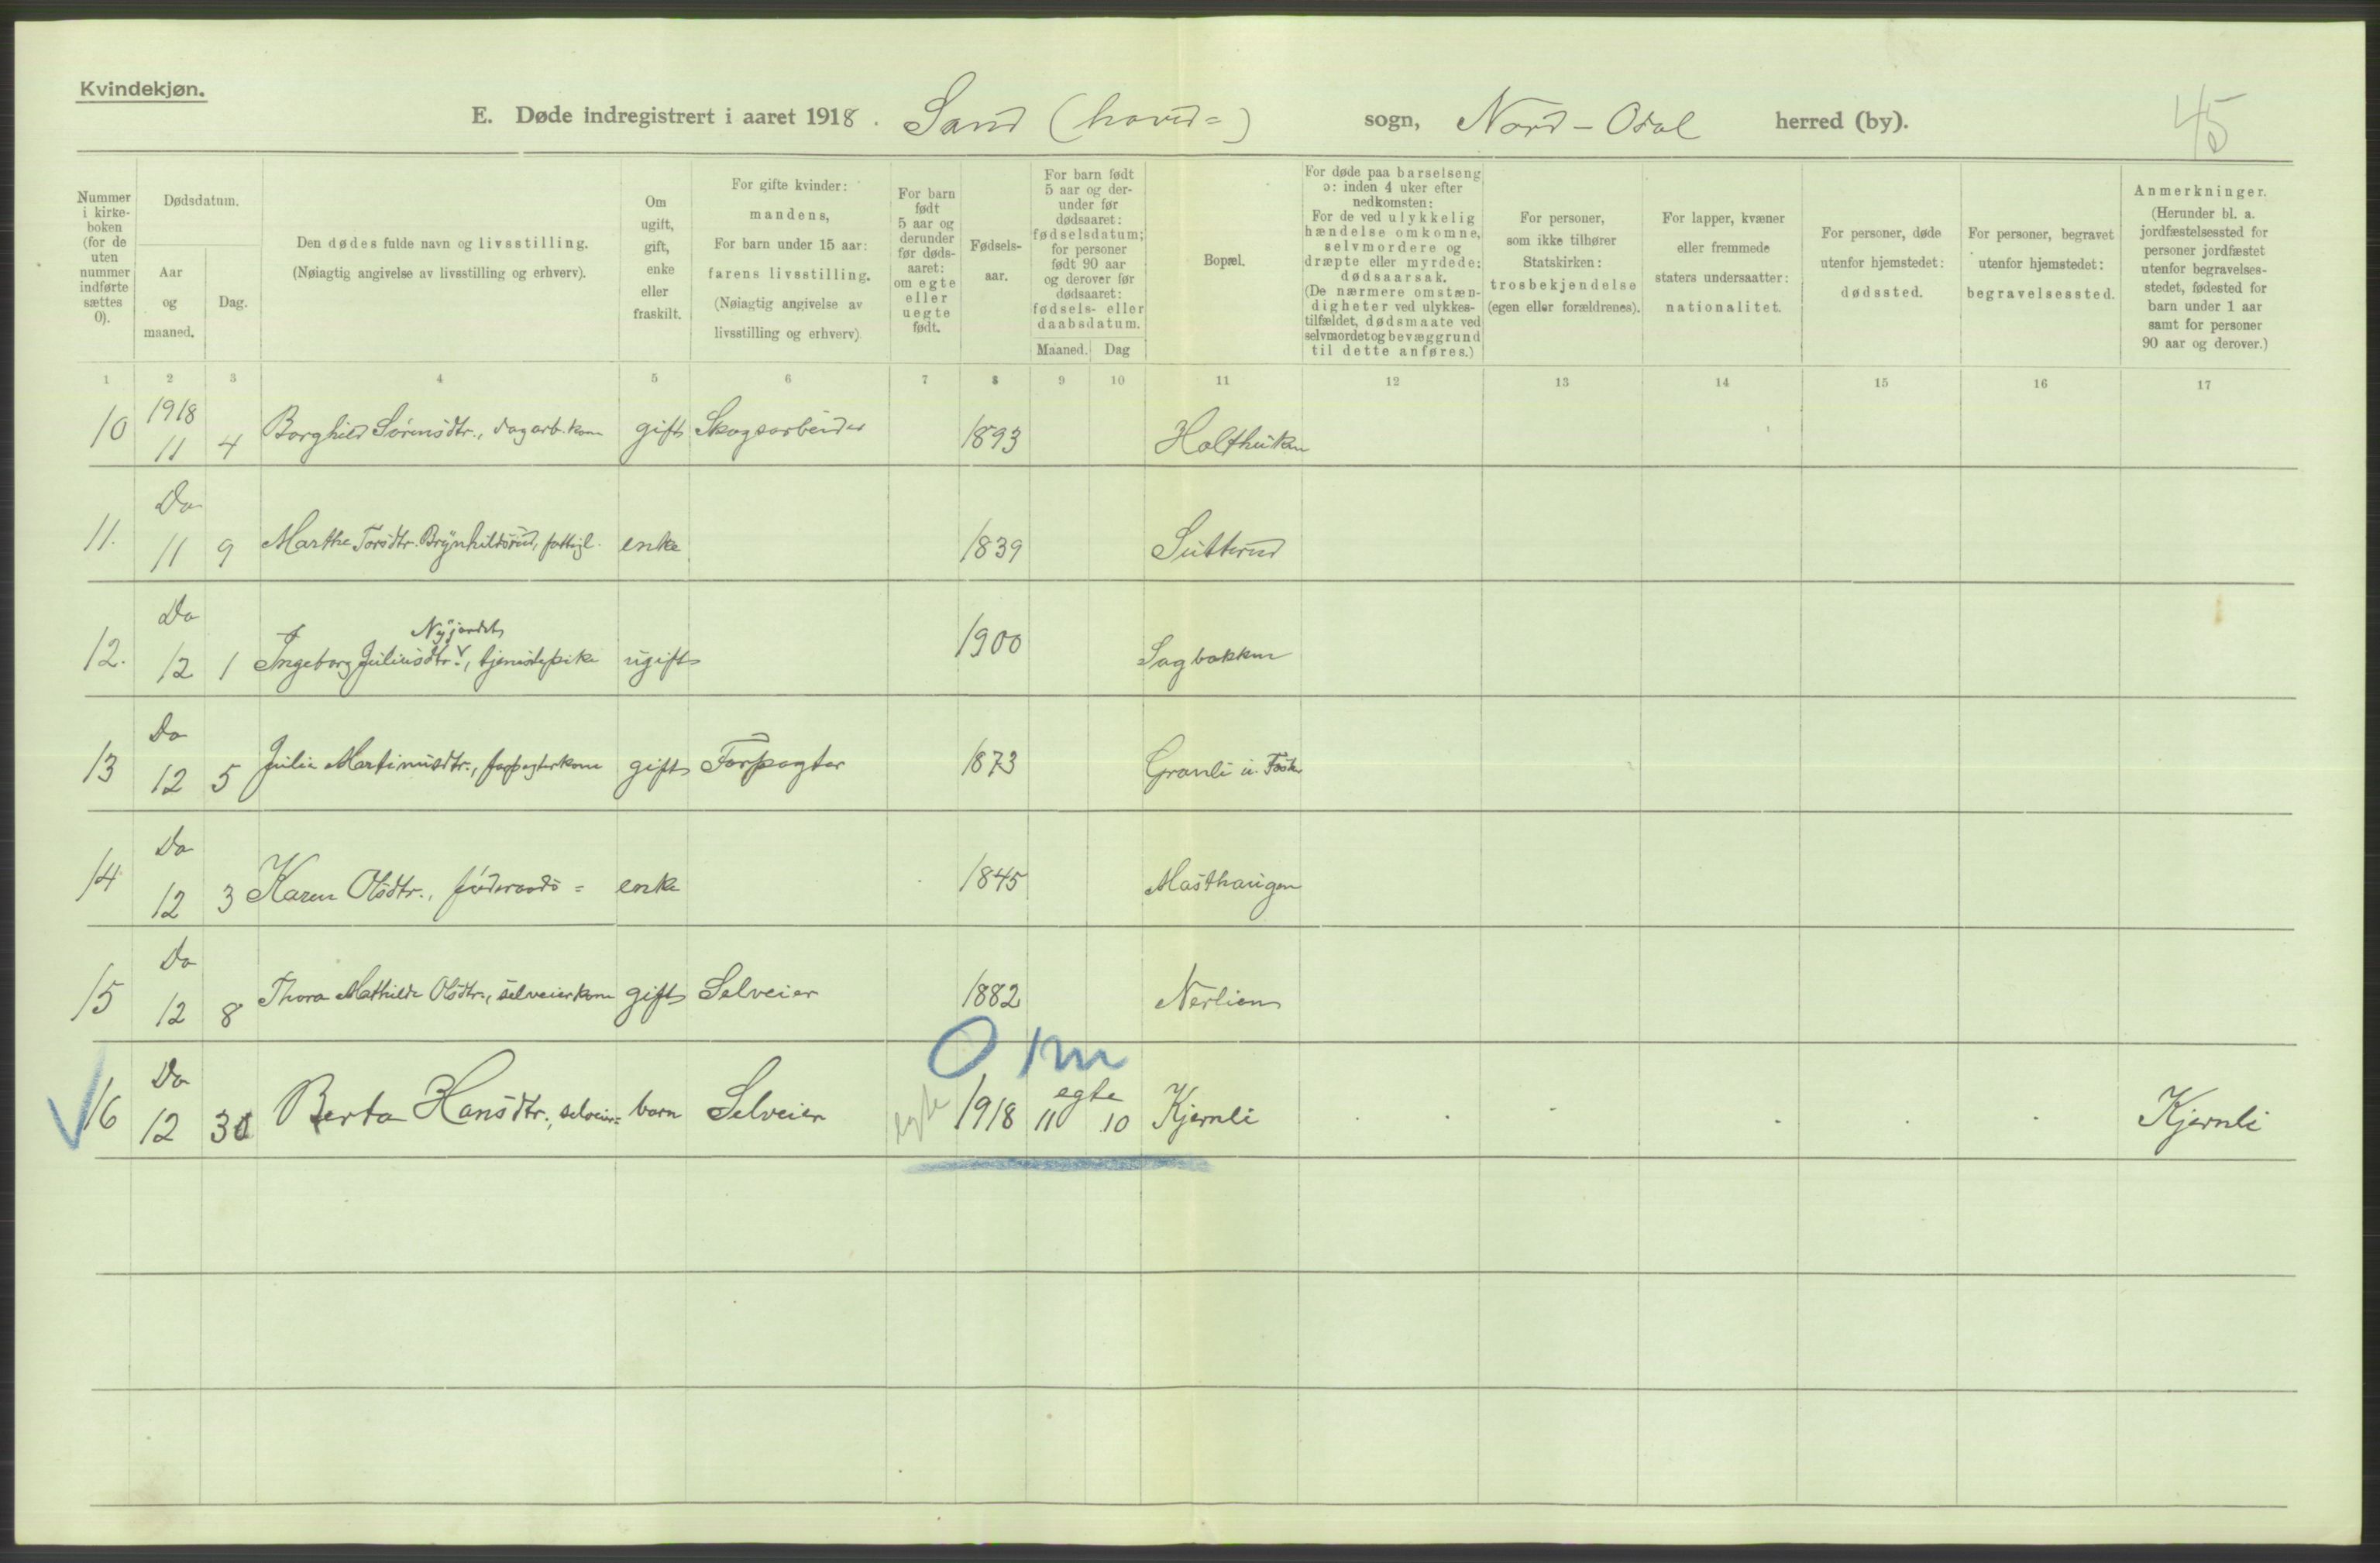 Kvindekjøn.
E. Døde indregistrert i aaret 1918. Sand (hoved=) sogn, Nord-Odal herred (by).
45
Nummer i kirkeboken (for de uten nummer indførte sættes 0).
Dødsdatum.
Aar og maaned.
Dag.
Den dødes fulde navn og livsstilling.
(Nøiagtig angivelse av livsstilling og erhverv).
Om ugift, gift, enke eller fraskilt.
For gifte kvinder:
mandens,
For barn under 15 aar:
farens livsstilling.
(Nøiagtig angivelse av
livsstilling og erhverv).
For barn født 5 aar og derunder før dødsaaret: om egte eller uegte født.
Fødsels-
aar.
For barn født 5 aar og derunder før dødsaaret: fødselsdatum; for personer født 90 aar og derover før dødsaaret: fødsels- eller daabsdatum.
Maaned. Dag
Bopæl.
For døde paa barselseng ɔ: inden 4 uker efter nedkomsten:
For de ved ulykkelig hændelse omkomne, selvmordere og dræpte eller myrdede: dødsaarsak.
(De nærmere omstændigheter ved ulykkestilfældet, dødsmaate ved selvmordet og bevæggrund til dette anføres.)
For personer, som ikke tilhører Statskirken: trosbekjendelse (egen eller forældrenes).
For lapper, kvæner eller fremmede staters undersaatter: nationalitet.
For personer, døde utenfor hjemstedet: dødssted.
For personer, begravet utenfor hjemstedet: begravelsessted.
Anmerkninger.
(Herunder bl. a. jordfæstelsessted for personer jordfæstet utenfor begravelsesstedet, fødested for barn under 1 aar samt for personer 90 aar og derover.)
1 2 3 4 5 6 7 8 9 10 11 12 13 14 15 16 17
1918
10 11 4 Borghild Sørensdtr., dagarb.kone gift Skogsarbeider 1893 Holthuken
Do
11. 11 9 Marthe Torsdtr. Brynhildsrud, fattigl. enke 1839 Sutterud
Do
Nyjordet
12. 12 1 Ingeborg Juliusdtr. v, tjenestepike ugift 1900 Sagbakken
Do
13 12 5 Julie Martinusdtr., forpagterkone gift Forpagter 1873 Granli u.
Do
14 12 3 Karen Olsdtr., føderaads= enke 1845 Masthaugen
Do
15 12 8 Thora Mathilde Olsdtr., selveierkone gift Selveier 1882 Nerlien
0 1m
Do
egte
16 12 30 Berta Hansdtr., selveier= barn Selveier egte 1918 11 10 Kjernli Kjernli